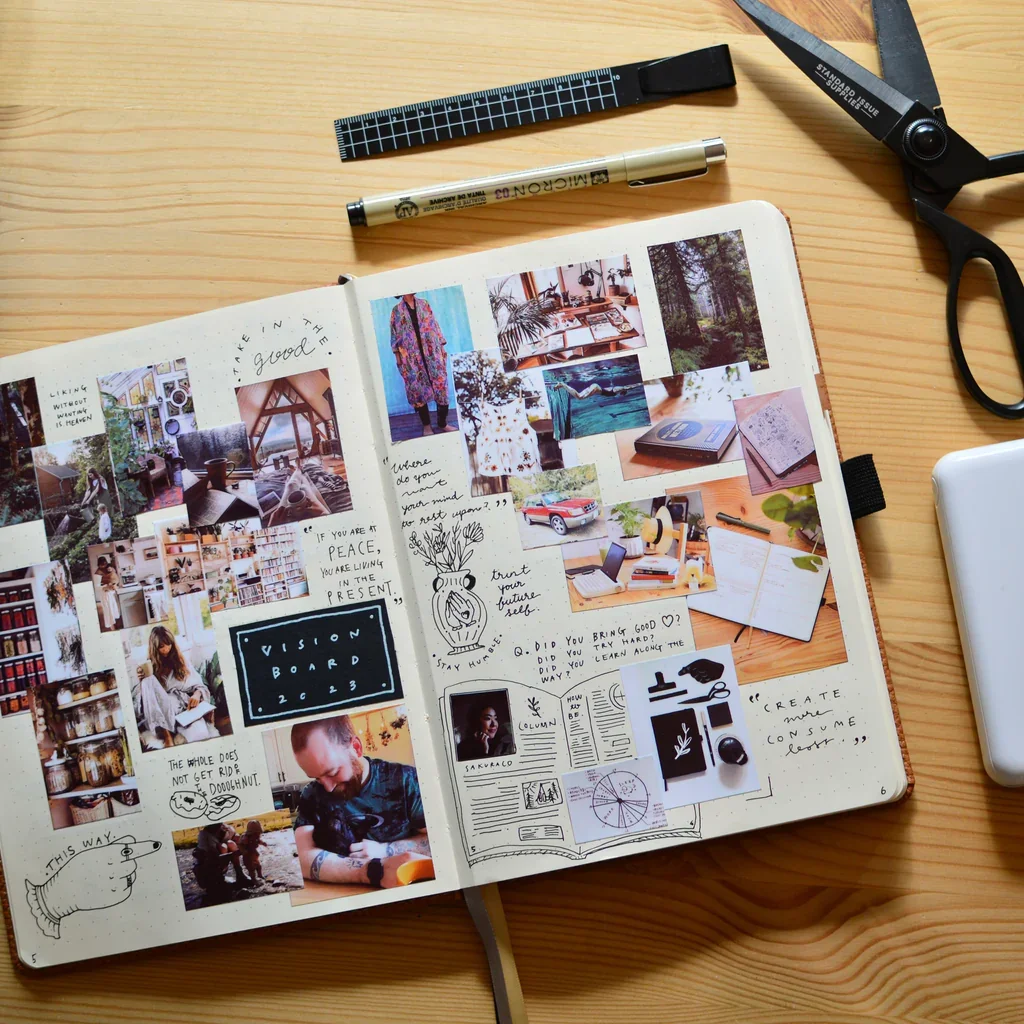 STANDARD ISSUE
SUPPLIES
MICRON 03
TAKE IN THE
good
LIKING
WITHOUT
WANTING
IS HEAVEN
"IF YOU ARE AT
PEACE,
YOU ARE LIVING
IN THE
PRESENT."
VISION
BOARD
2023
THE WHOLE DOES
NOT GET RID
DOUGHNUT.
THIS WAY
5
"Where
do you
want
your mind
to rest upon?"
trust
your
future
self.
STAY HUMBLE.
Q. DID YOU BRING GOOD
DID YOU TRY HARD?
DID YOU LEARN ALONG THE
WAY?
COLUMN
HOW
TO
BE.
SAKURACO
5
"CREATE
more
CONSUME
less."
6